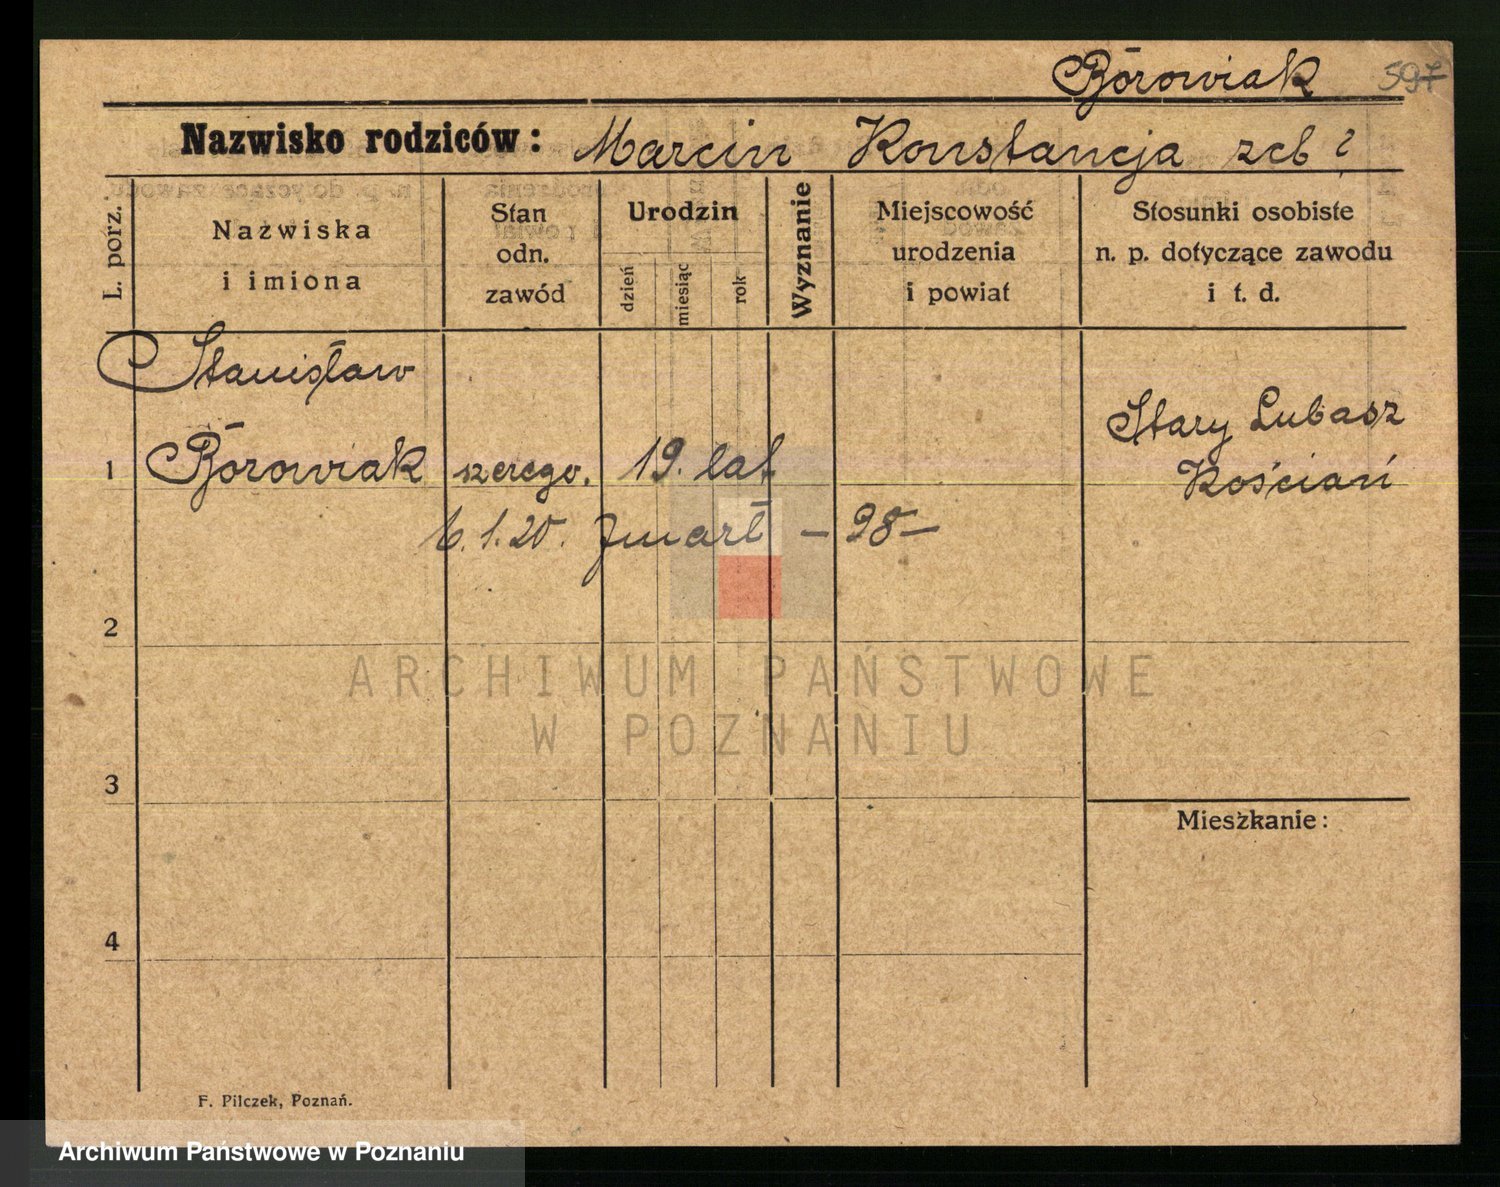 Borowiak 597
Nazwisko rodziców: Marcin Konstancja
L. porz.
Nazwiska i imiona
Stan odn. zawód
Urodzin
dzień
miesiąc
rok
Wyznanie
Miejscowość urodzenia i powiat
Stosunki osobiste n. p. dotyczące zawodu i t. d.
Stanisław
1 Borowiak szerego. 19. lat
Stary Lubasz
Kościań
6.1.20. zmarł – 98 –
2
3
Mieszkanie:
4
F. Pilczek, Poznań.
ARCHIWUM PAŃSTWOWE
W POZNANIU
Archiwum Państwowe w Poznaniu